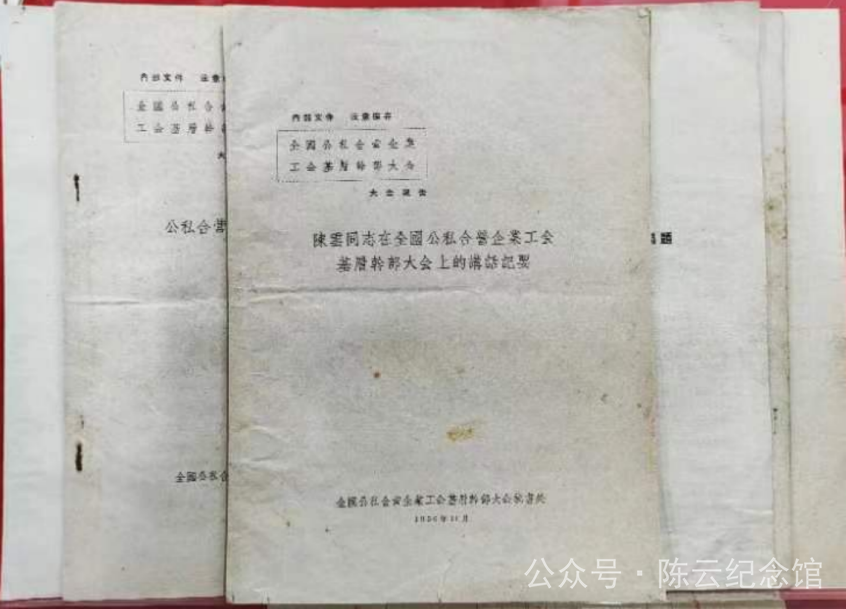 內部文件 注意
全國公私合
工会基層幹
大
公私合營
全國公私合
內部文件 注意保存
全國公私合营企業
工会基層幹部大会
大会報告
陳雲同志在全國公私合营企業工会
基層幹部大会上的講話記要
全國公私合营企業工会基層幹部大会秘書处
1956年11月
題
公众号·陈云纪念馆